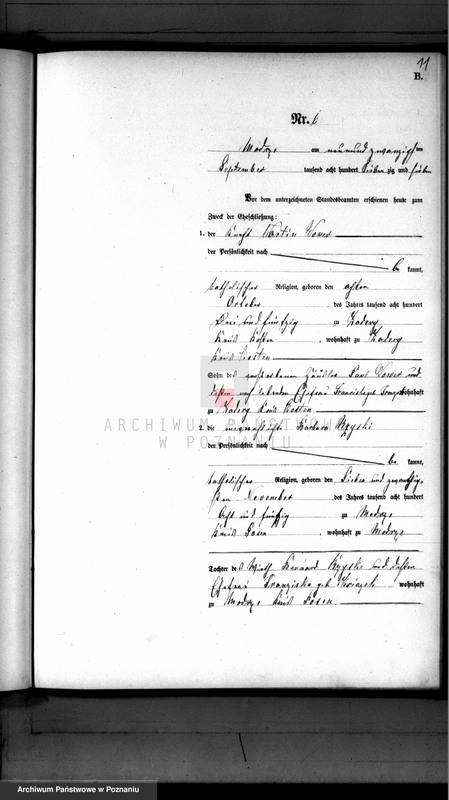 11
B.
Nr. 6
Modrze am neunundzwanzigsten
September tausend acht hundert siebenzig und sieben
Vor dem unterzeichneten Standesbeamten erschienen heute zum
Zweck der Eheschließung:
1. der Knecht Martin
der Persönlichkeit nach
be kannt,
katholischer Religion, geboren den achten
October des Jahres tausend acht hundert
drei und fünfzig zu
Kreis Kosten, wohnhaft zu
Kreis Kosten
Sohn des verstorbenen Häusler Paul und
dessen noch lebenden Ehefrau wohnhaft
zu Kreis Kosten
2. die Barbara
der Persönlichkeit nach
be kannt,
katholischer Religion, geboren den sieben und zwanzig-
sten November des Jahres tausend acht hundert
acht und fünfzig zu Modrze
Kreis Posen, wohnhaft zu Modrze
Tochter des Wirth und dessen
Ehefrau Franziska geb. wohnhaft
zu Modrze Kreis Posen.
ARCHIWUM PAŃSTWOWE
W POZNANIU
Archiwum Państwowe w Poznaniu